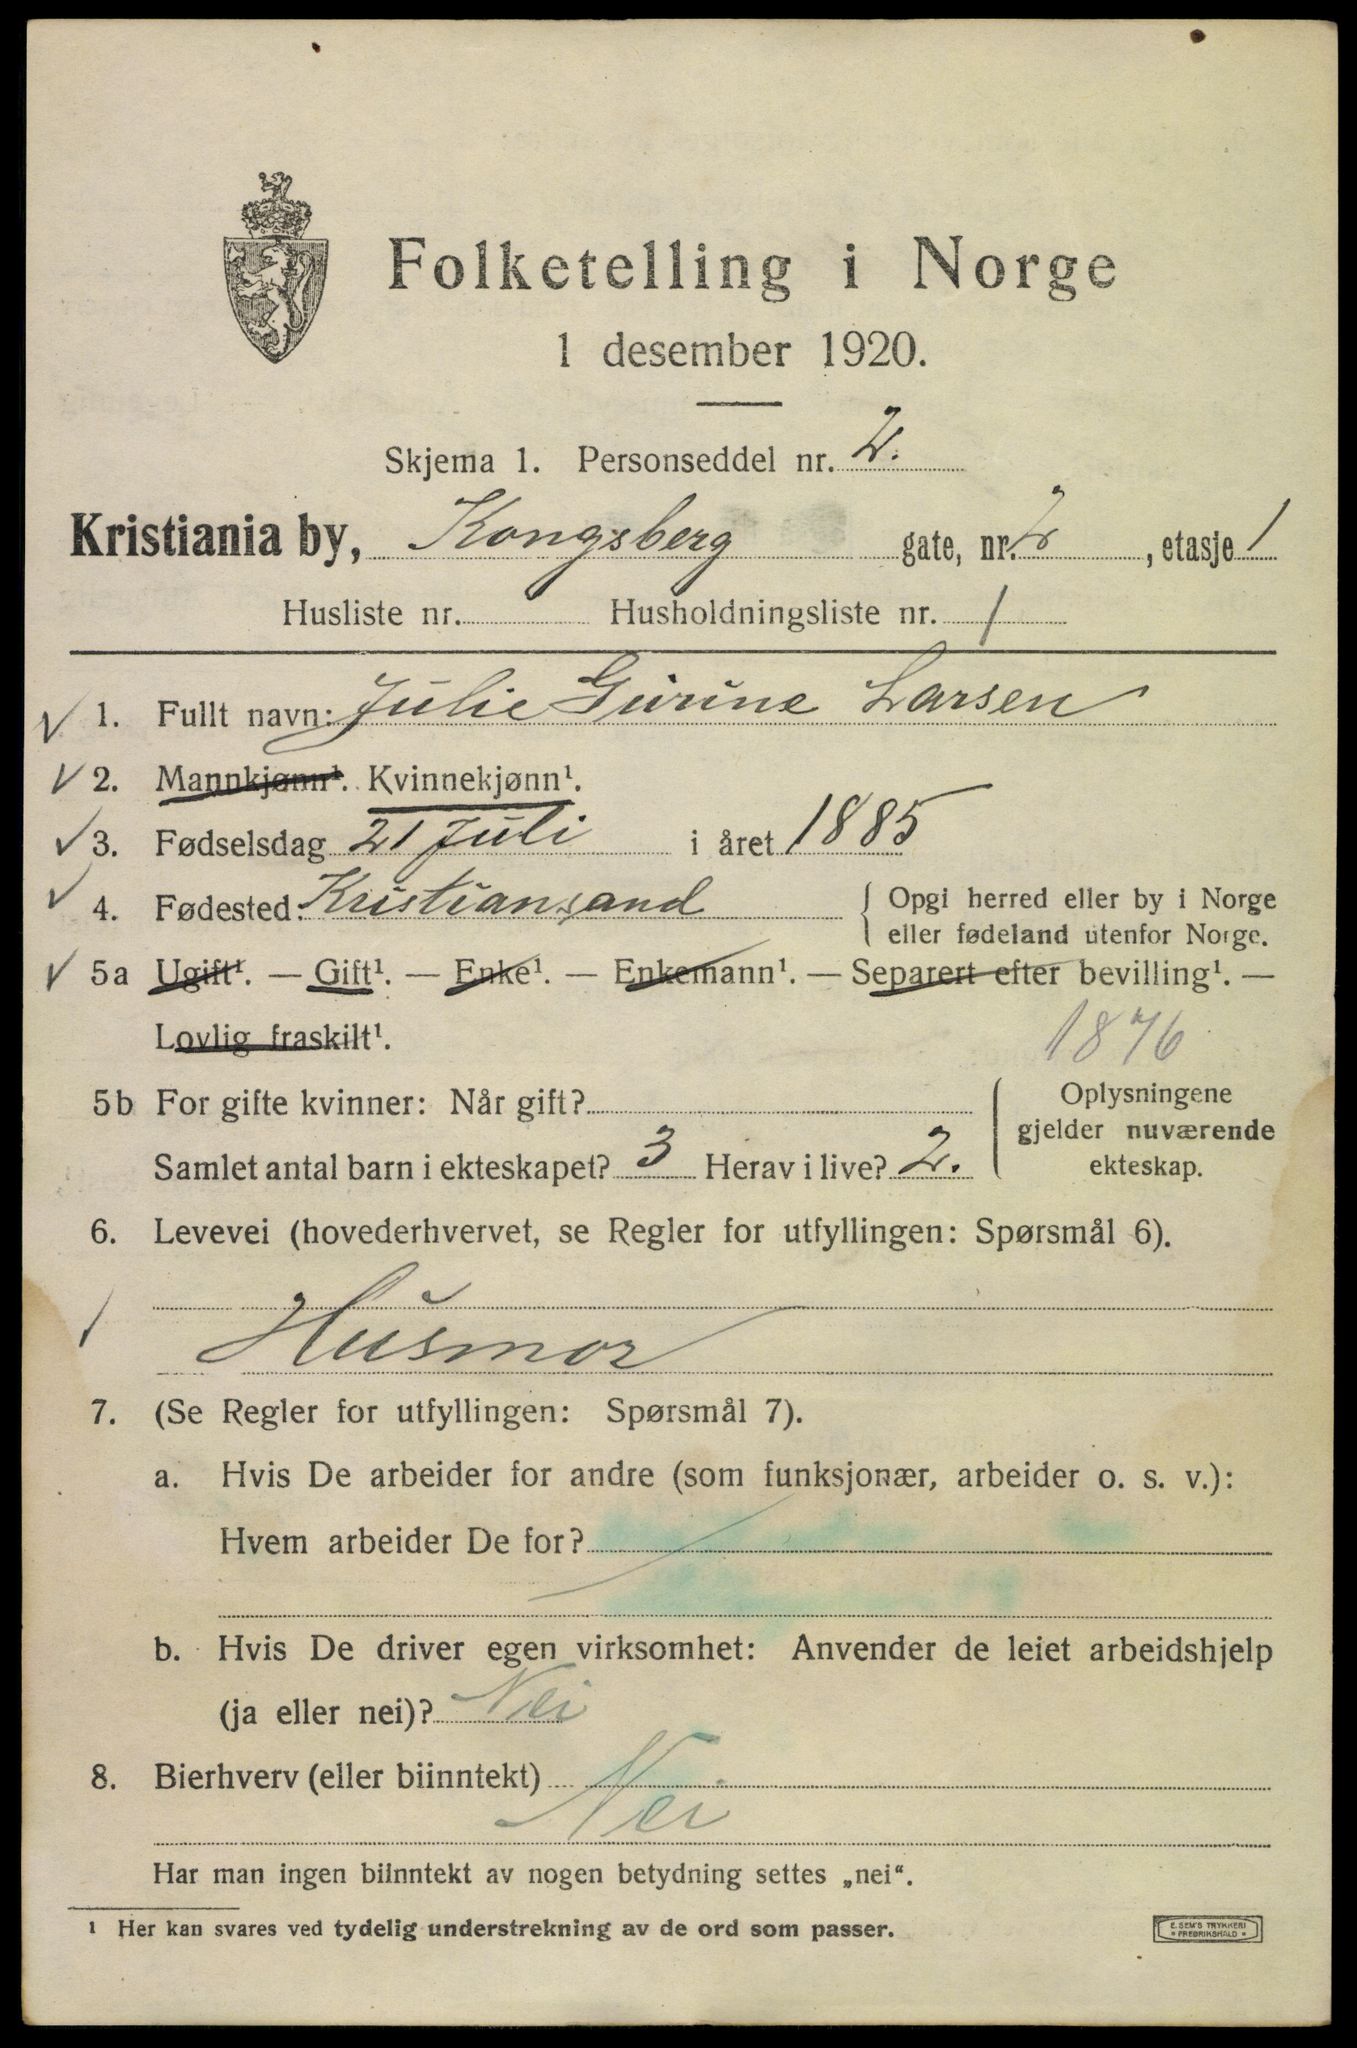 Folketelling i Norge
1 desember 1920.
Skjema 1. Personseddel nr. 2.
Kristiania by, Kongsberg gate, nr. 2, etasje 1
Husliste nr. Husholdningsliste nr. 1
1. Fullt navn: Julie Gurine Larsen
2. Mannkjønn¹. Kvinnekjønn¹.
3. Fødselsdag 21 Juli i året 1885
4. Fødested: Kristiansand { Opgi herred eller by i Norge
eller fødeland utenfor Norge.
5a Ugift¹. — Gift¹. — Enke¹. — Enkemann¹. — Separert efter bevilling¹. —
Lovlig fraskilt¹.
1876
5b For gifte kvinner: Når gift?
Samlet antal barn i ekteskapet? 3 Herav i live? 2.
{ Oplysningene
gjelder nuværende
ekteskap.
6. Levevei (hovederhvervet, se Regler for utfyllingen: Spørsmål 6).
Husmor
7. (Se Regler for utfyllingen: Spørsmål 7).
a. Hvis De arbeider for andre (som funksjonær, arbeider o. s. v.):
Hvem arbeider De for?
b. Hvis De driver egen virksomhet: Anvender de leiet arbeidshjelp
(ja eller nei)? Nei
8. Bierhverv (eller biinntekt)
Nei
Har man ingen biinntekt av nogen betydning settes „nei“.
¹ Her kan svares ved tydelig understrekning av de ord som passer.
E. SEM'S TRYKKERI
* FREDRIKSHALD *